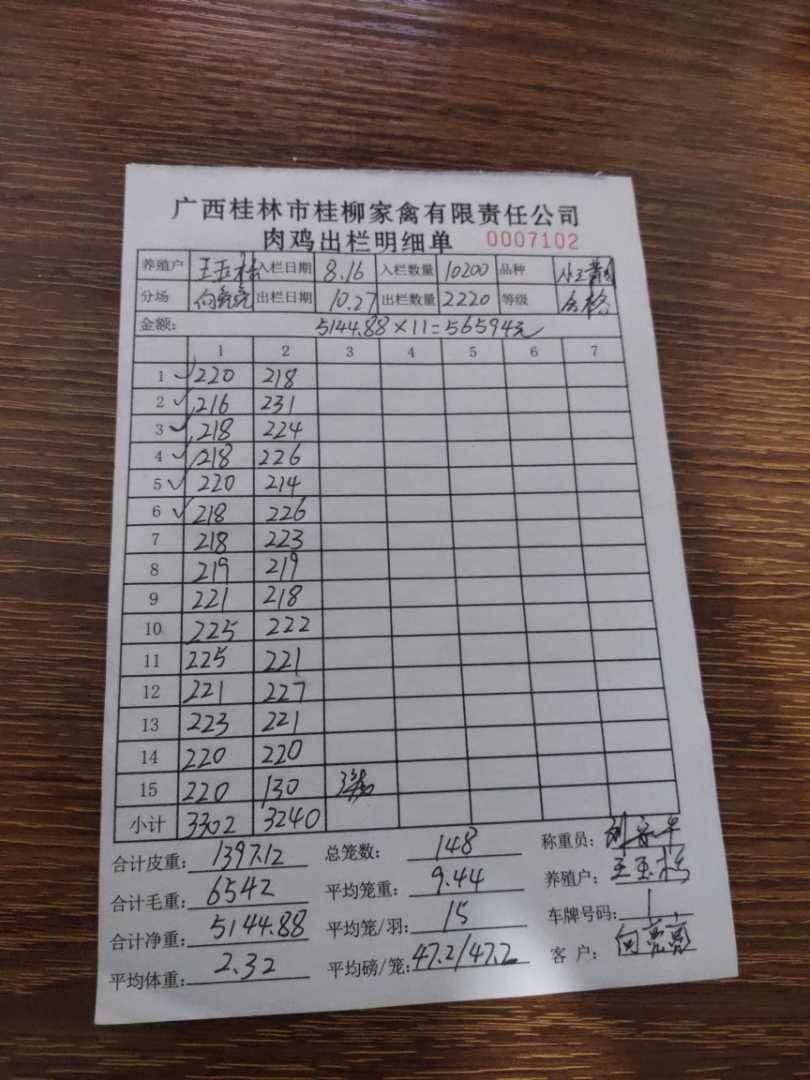 广西桂林市桂柳家禽有限责任公司
肉鸡出栏明细单 0007102
养殖户 王玉桂 入栏日期 8.16 入栏数量 10200 品种
分场 出栏日期 10.27 出栏数量 2220 等级 合格
金额: 5144.88×11=56594元
1 2 3 4 5 6 7
1 220 218
2 216 231
3 218 224
4 218 226
5 220 214
6 218 226
7 218 223
8 219 219
9 221 218
10 225 222
11 225 221
12 221 227
13 223 221
14 220 220
15 220 130
小计 3302 3240
合计皮重: 1397.12 总笼数: 148 称重员:
合计毛重: 6542 平均笼重: 9.44 养殖户: 王玉桂
合计净重: 5144.88 平均笼/羽: 15 车牌号码: 1
平均体重: 2.32 平均磅/笼: 47.2/47.2 客户: